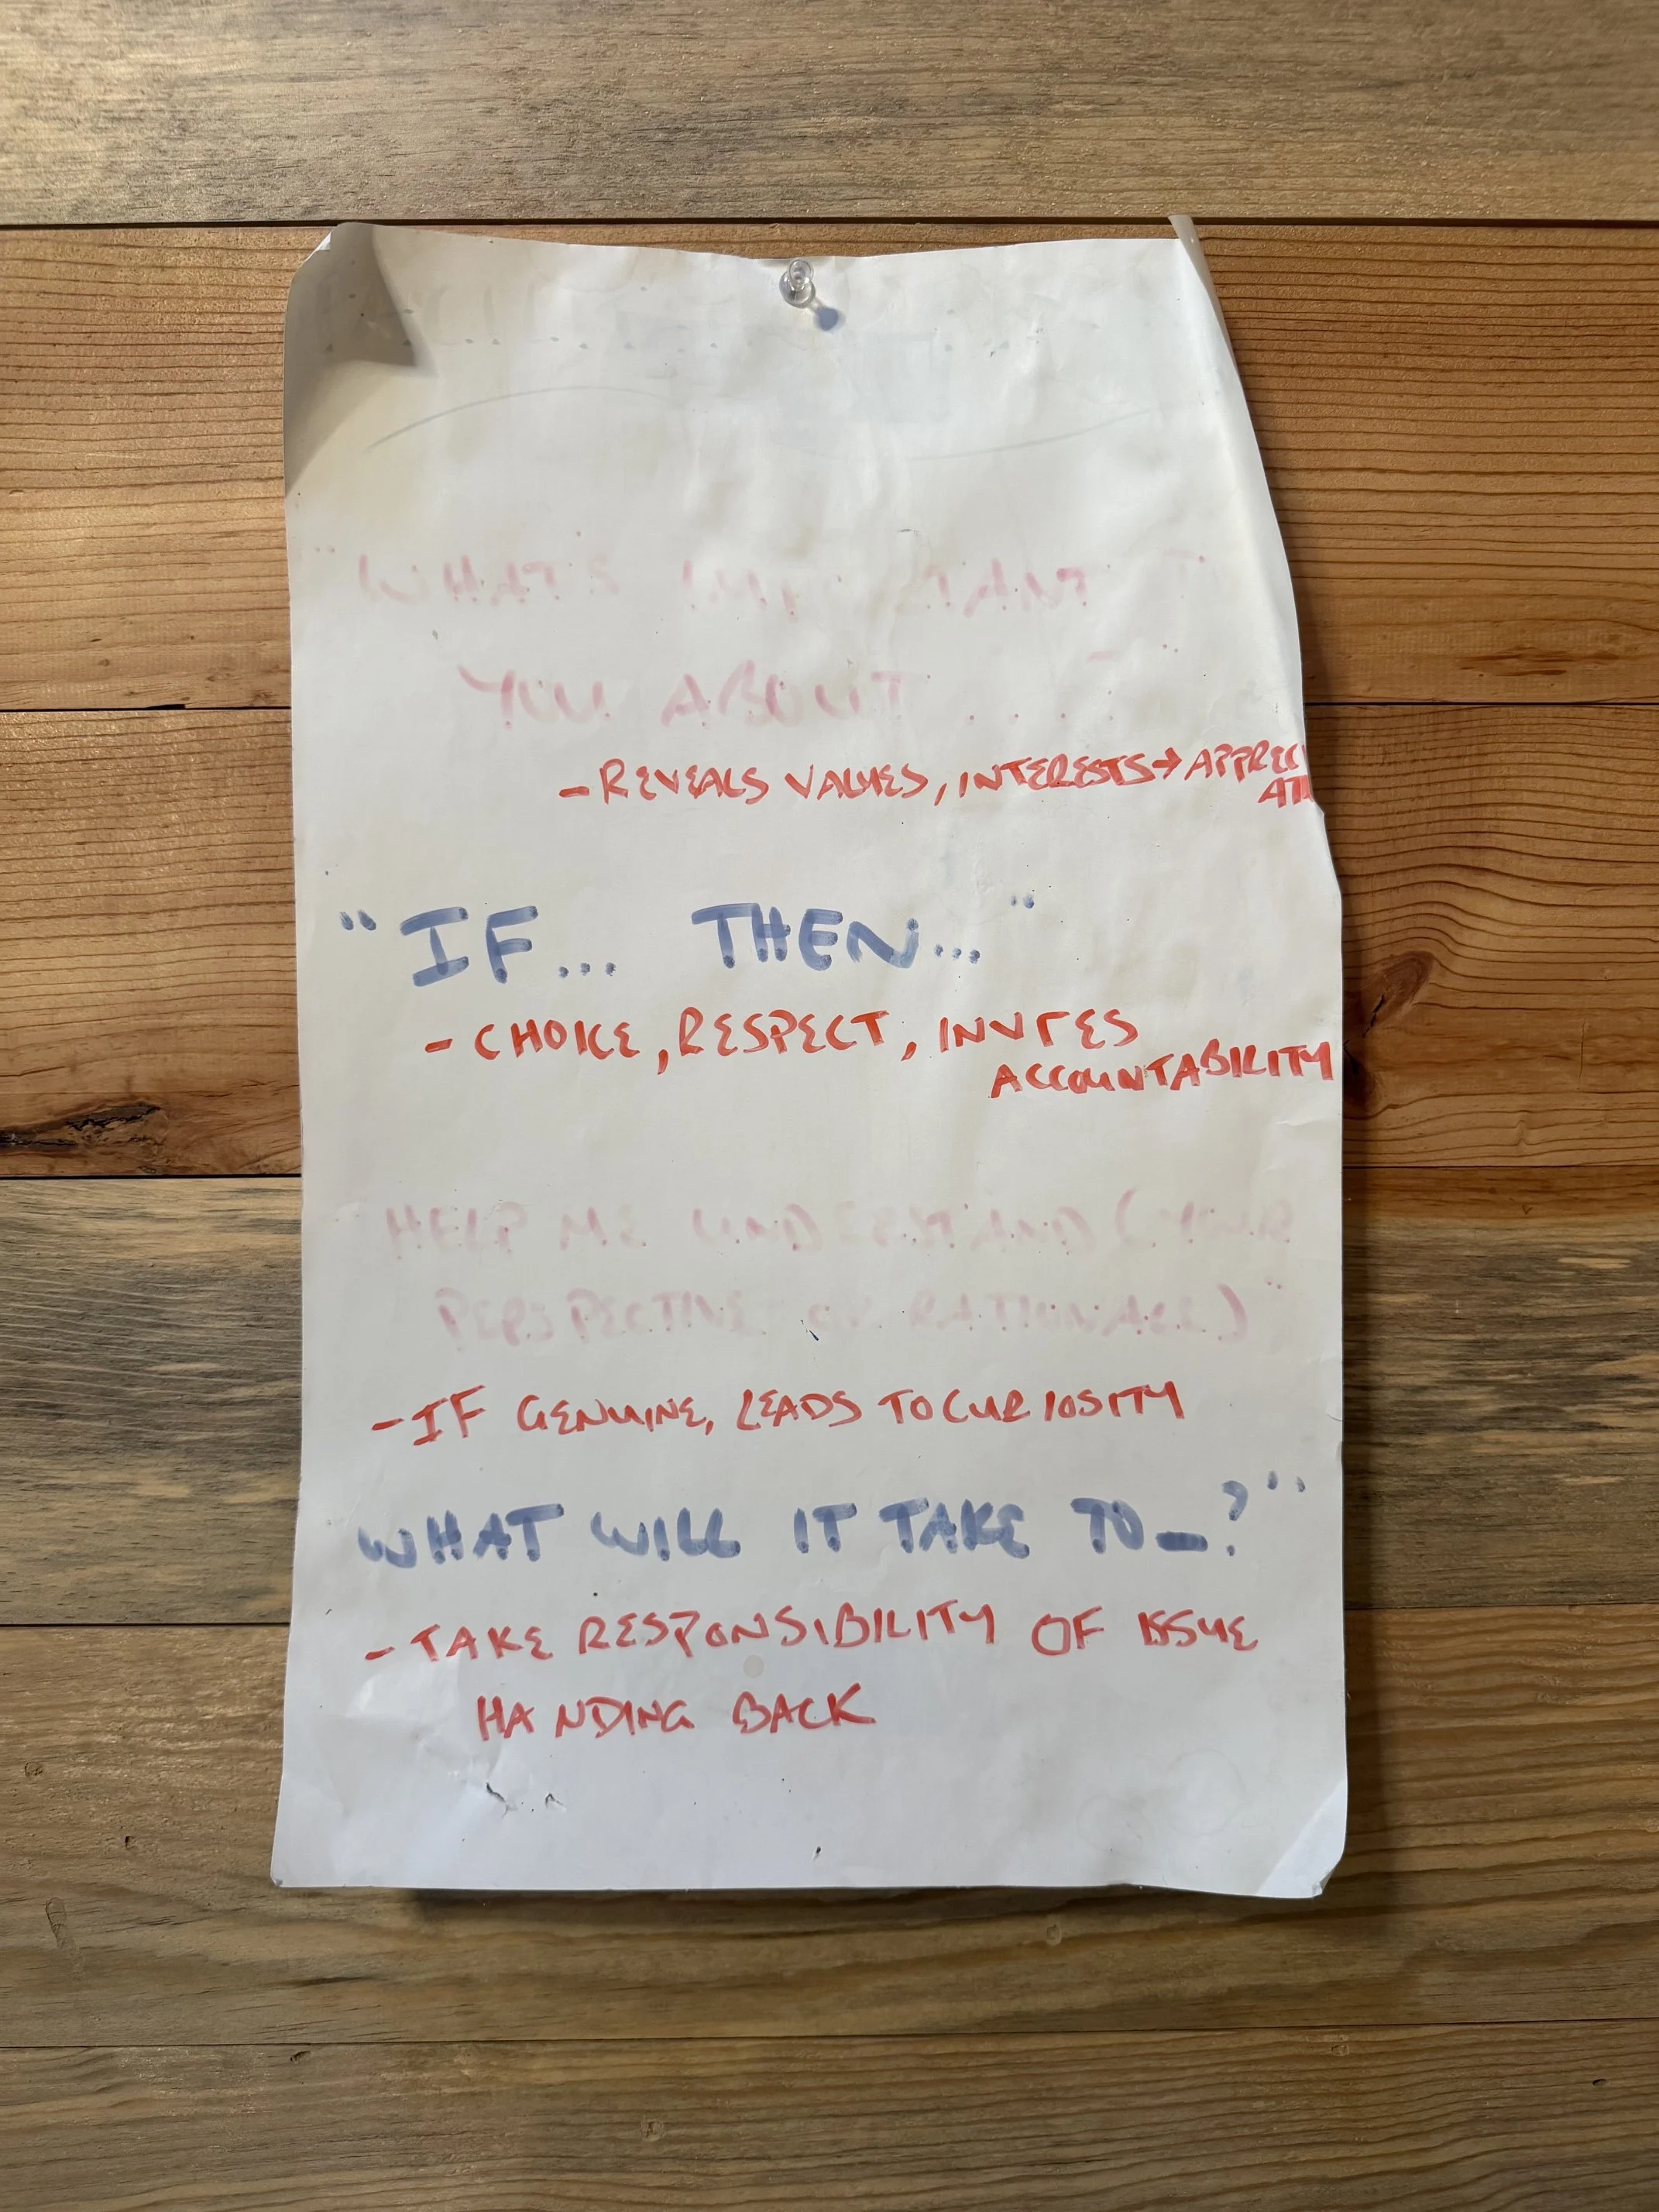 "WHAT'S IMPORTANT
YOU ABOUT ...?"
- REVEALS VALUES, INTERESTS → APPRECI
"IF... THEN..."
- CHOICE, RESPECT, INVITES
ACCOUNTABILITY
HELP ME UNDERSTAND (YOUR
PERSPECTIVE OR RATIONALE)"
- IF GENUINE, LEADS TO CURIOSITY
WHAT WILL IT TAKE TO _?"
- TAKE RESPONSIBILITY OF ISSUE
HANDING BACK